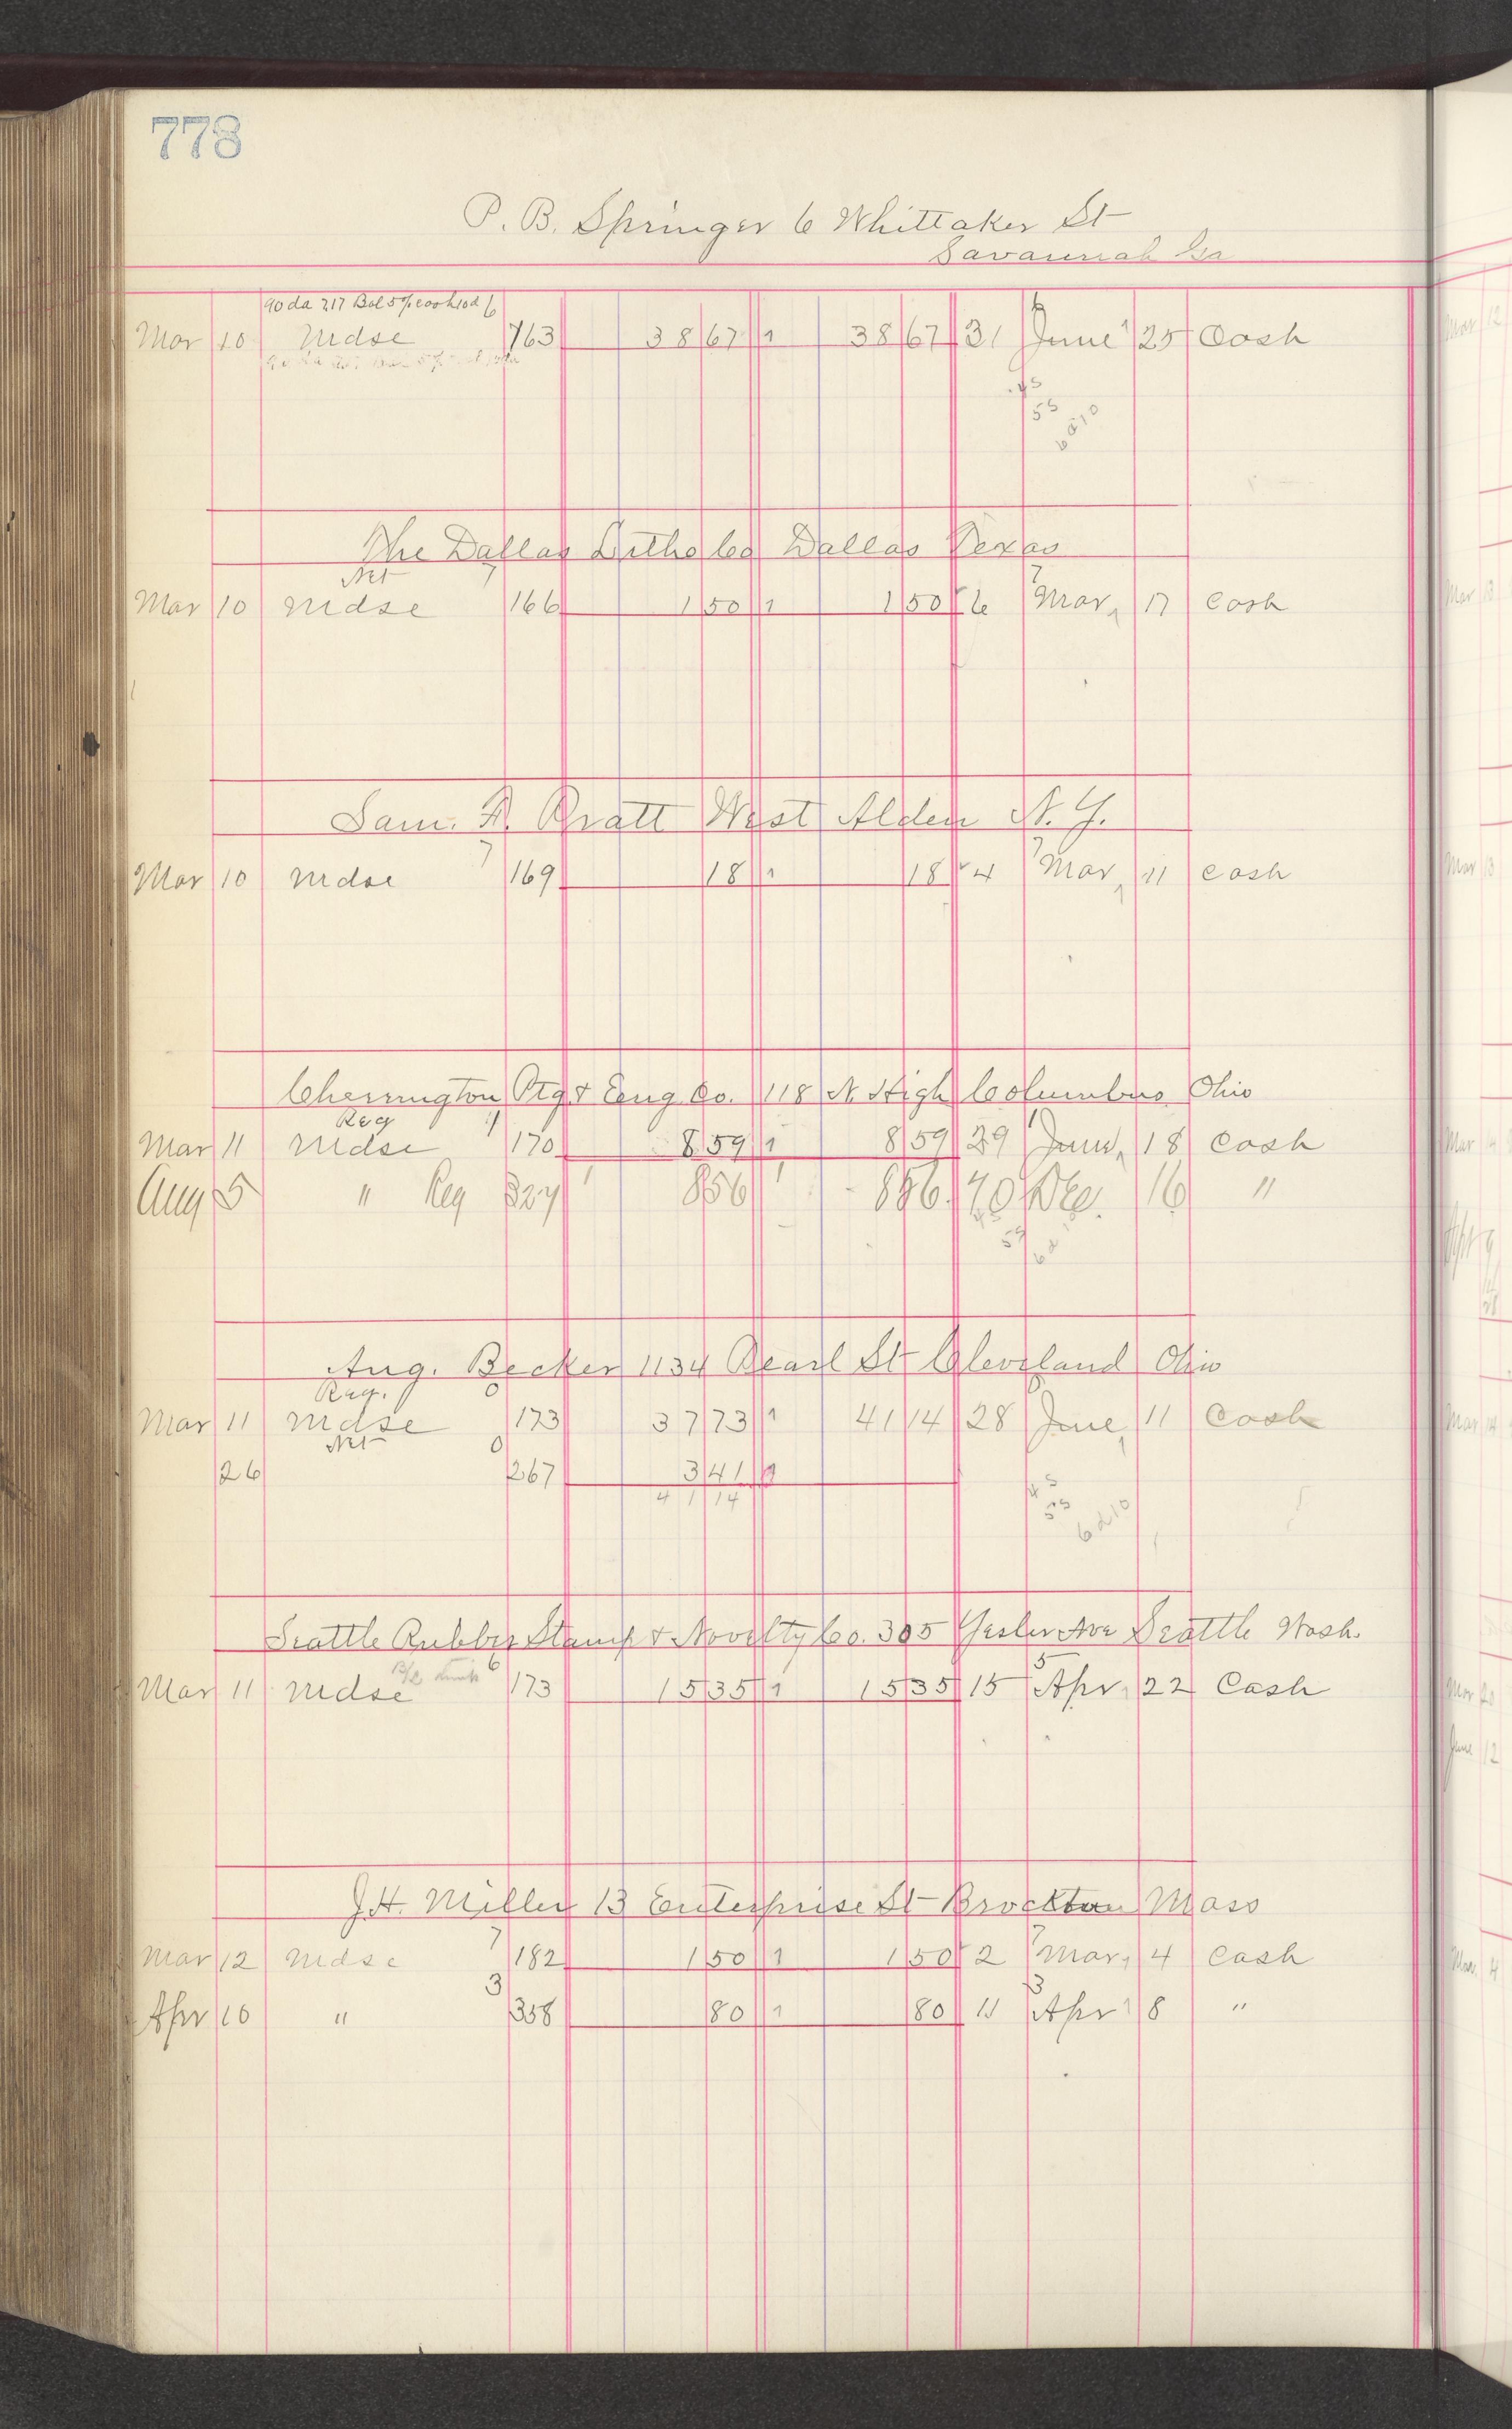 778
P. B. Springer 6 Whittaker St
Savannah Ga
90 da 7.17 Bal 5% cash 10 d 6 6
Mar 10 Mdse 163 38 67 1 38 67 31 June 1 25 Cash
45
55
6 d 10
The Dallas Litho Co Dallas Texas
Net 7 7
Mar 10 Mdse 166 1 50 1 1 50 6 Mar 17 Cash
Sam. F. Pratt West Alden N.Y.
7 7
Mar 10 Mdse 169 18 1 18 4 Mar 11 Cash
Cherrington Ptg & Eng Co. 118 N High Columbus Ohio
Reg
Mar 11 Mdse 170 8 59 1 8 59 29 June 18 Cash
Aug 5 " Reg 327 8 56 1 8 56 70 Dec. 16 "
Aug. Becker 1134 Pearl St Cleveland Ohio
Reg. 0
Mar 11 Mdse 173 37 73 1 41 14 28 June 11 Cash
Net 0
26 267 3 41 1
41 14
45
55
6 d 10
Seattle Rubber Stamp & Novelty Co. 305 Yesler Ave Seattle Wash.
6 5
Mar 11 Mdse 173 15 35 1 15 35 15 Apr 22 Cash
J.H. Miller 13 Enterprise St Brockton Mass
7 7
Mar 12 Mdse 182 1 50 1 1 50 2 Mar 4 Cash
3 3
Apr 10 " 358 80 1 80 11 Apr 8 "